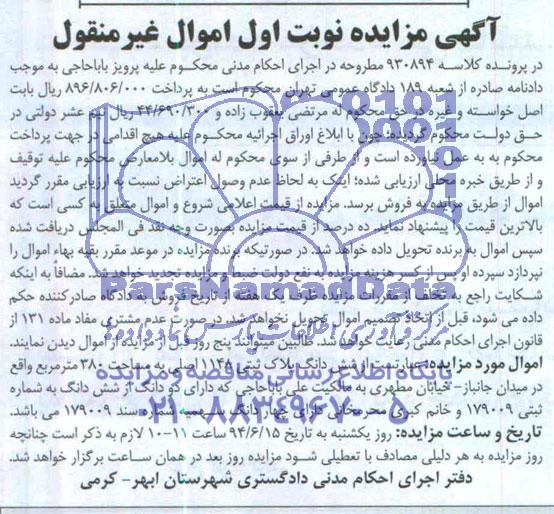 آگهی مزایده نوبت اول اموال غیرمنقول
در پرونده کلاسه ۹۳۰۸۹۴ مطروحه در اجرای احکام مدنی محکوم علیه پرویز باباحاجی به موجب
دادنامه صادره از شعبه ۱۸۹ دادگاه عمومی تهران محکوم است به پرداخت ۸۹۶/۸۰۶/۰۰۰ ریال بابت
اصل خواسته و غیره در حق محکوم له مرتضی یعقوب زاده و ۴۴/۶۹۰/۳۰۰ ریال نیم عشر دولتی در
حق دولت محکوم گردیده؛ چون با ابلاغ اوراق اجرائیه محکوم علیه هیچ اقدامی در جهت پرداخت
محکوم به به عمل نیاورده است و از طرفی از سوی محکوم له اموال بلامعارض محکوم علیه توقیف
و از طریق خبره محلی ارزیابی شده؛ اینک به لحاظ عدم وصول اعتراض نسبت به ارزیابی مقرر گردید
اموال از طریق مزایده به فروش برسد. مزایده از قیمت اعلامی شروع و اموال متعلق به کسی است که
بالاترین قیمت را پیشنهاد نماید. ده درصد از قیمت مزایده بصورت وجه نقد فی المجلس دریافت شده
سپس اموال به برنده تحویل داده خواهد شد. در صورتیکه برنده مزایده در موعد مقرر بقیه بهاء اموال را
نپردازد سپرده او پس از کسر هزینه مزایده به نفع دولت ضبط و مزایده تجدید خواهد شد. مضافا به اینکه
شکایت راجع به تخلف از مقررات مزایده ظرف یک هفته از تاریخ فروش به دادگاه صادرکننده حکم
داده می شود، قبل از اتخاذ تصمیم اموال تحویل نخواهد شد. در صورت عدم مشتری مفاد ماده ۱۳۱ از
قانون اجرای احکام مدنی رعایت خواهد شد. طالبین میتوانند پنج روز قبل از مزایده از اموال دیدن نمایند.
اموال مورد مزایده: عبارتست از شش دانگ پلاک ثبتی ۱۱۴۸ به مساحت ۳۸۰ مترمربع واقع
در میدان جانباز- خیابان مطهری به مالکیت علی باباحاجی که دارای دو دانگ از شش دانگ به شماره
ثبتی ۱۷۹۰۰۹ و خانم کبری محرمخانی دارای چهار دانگ سهمیه شماره سند ۱۷۹۰۰۹ می باشد.
تاریخ و ساعت مزایده: روز یکشنبه به تاریخ ۹۴/۶/۱۵ ساعت ۱۱-۱۰ لازم به ذکر است چنانچه
روز مزایده به هر دلیلی مصادف با تعطیلی شود مزایده روز بعد در همان ساعت برگزار خواهد شد.
دفتر اجرای احکام مدنی دادگستری شهرستان ابهر- کرمی
ParsNamadData
پایگاه اطلاع رسانی مناقصه و مزایده
۰۲۱-۸۸۳۴۹۶۷۰-۵